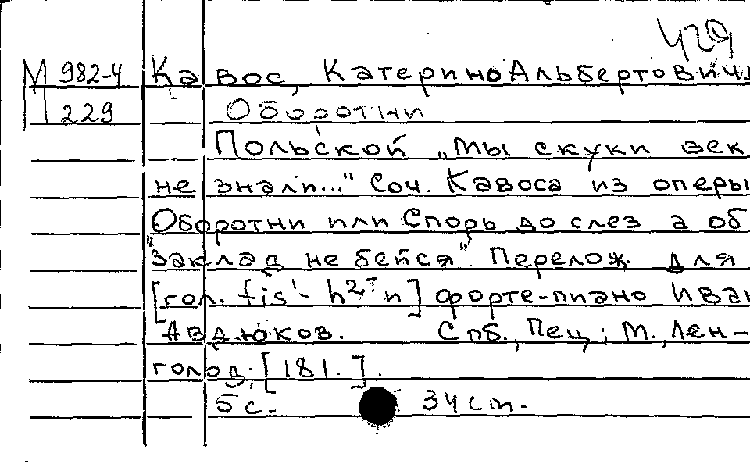 429
М 982-4 Кавос, Катерино Альбертович.
229 Оборотни
Польской „Мы скуки век
не знали..." Соч. Кавоса из оперы
Оборотни или Спорь до слез а об
"заклад не бейся". Перелож. для
[гол. fis¹- h² и] форте-пиано Иван
Авдюков. Спб., Пец; М., Лен-
голд. [181.].
5 с. 34 cm.